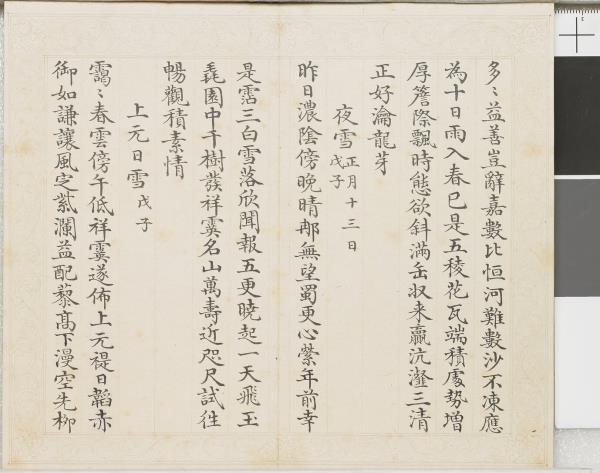 多〻益善豈辭嘉數比恒河難數沙不凍應
為十日雨入春已是五稜花瓦端積處勢增
厚簷際飄時態欲斜滿缶収来贏沆瀣三清
正好瀹龍芽
夜雪戊子正月十三日
昨日濃陰傍晚晴那無望蜀更心縈年前幸
是霑三白雪落欣聞報五更曉起一天飛玉
毳園中千樹發祥霙名山萬壽近咫尺試往
暢觀積素情
上元日雪戊子
靄〻春雲傍午低祥霙遂佈上元禔日韜赤
御如謙讓風定紫瀾益配藜髙下漫空先柳